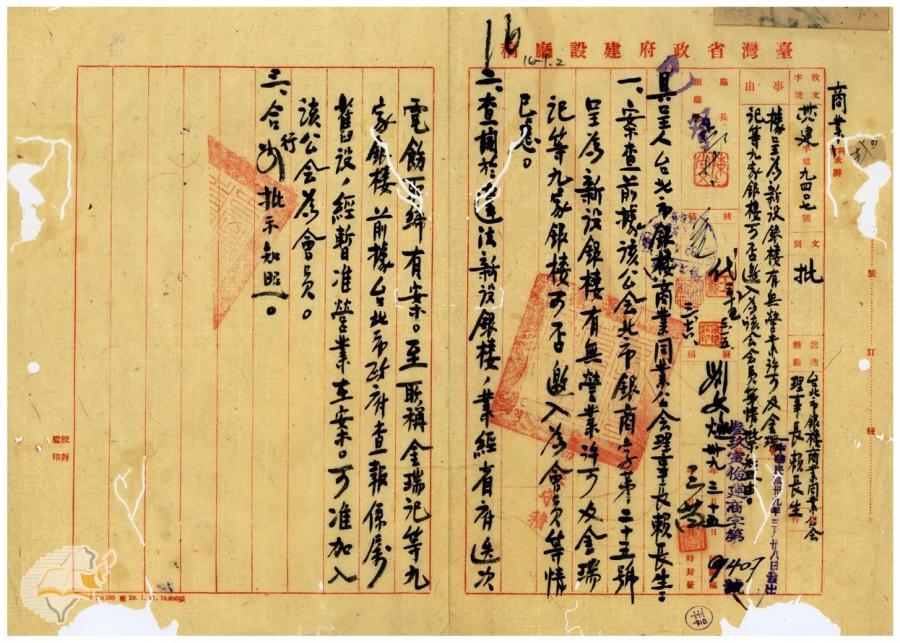 臺灣省政府建設廳稿
16-1.2
商業
科承辦
收文
字號
共建
字第九四〇七號
文別
批
送達機關
台北市銀樓商業同業公會
理事長賴長生
事由
據呈為新設銀樓有無營業許可及金瑞
記等九家銀樓可否邀入為該會會員等情
廳長
代
民國卅九年三月廿八日發出
寅儉建商字第
9407
號
具呈人台北市銀樓商業同業公會理事長賴長生。
一、案查前據該公會北市銀商字第二十五號
呈為新設銀樓有無營業許可及金瑞
記等九家銀樓可否邀入為會員等情
已悉。
二、查關於違法新設銀樓,業經省府迭次
電飭取締有案。至所稱金瑞記等九
家銀樓前據台北市政府查報係屬
舊設,經暫准營業在案。可准加入
該公會為會員。
三、合行批示知照。
裝
訂
線
校對
監印